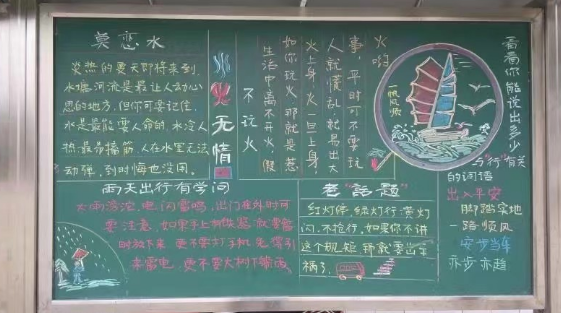 莫恋水
炎热的夏天即将来到,
水塘河流是最让人动心
思的地方,但你可要记住,
水是最能要人命的,水冷人
热最易搐筋,人在水里无法
动弹,到时悔也没用。
水火无情
不玩火
火哟
事,平时可不要玩
人就慌乱就易出大
火上身,火一旦上身
如你玩火那就是惹
生活中离不开火,假
一帆风顺
看看你能说出多少
与“行”有关
的词语
出入平安
脚踏实地
一路顺风
安步当车
亦步亦趋
雨天出行有学问
大雨滂沱,电闪雷鸣,出门在外时可
要注意,如果手上
时放下来,更不要打手机,免得引
来雷电,更不要大树下躲雨。
老“话题”
红灯停,绿灯行,黄灯
闪,不抢行,如果你不讲
这个规矩,那就要出车
祸了,